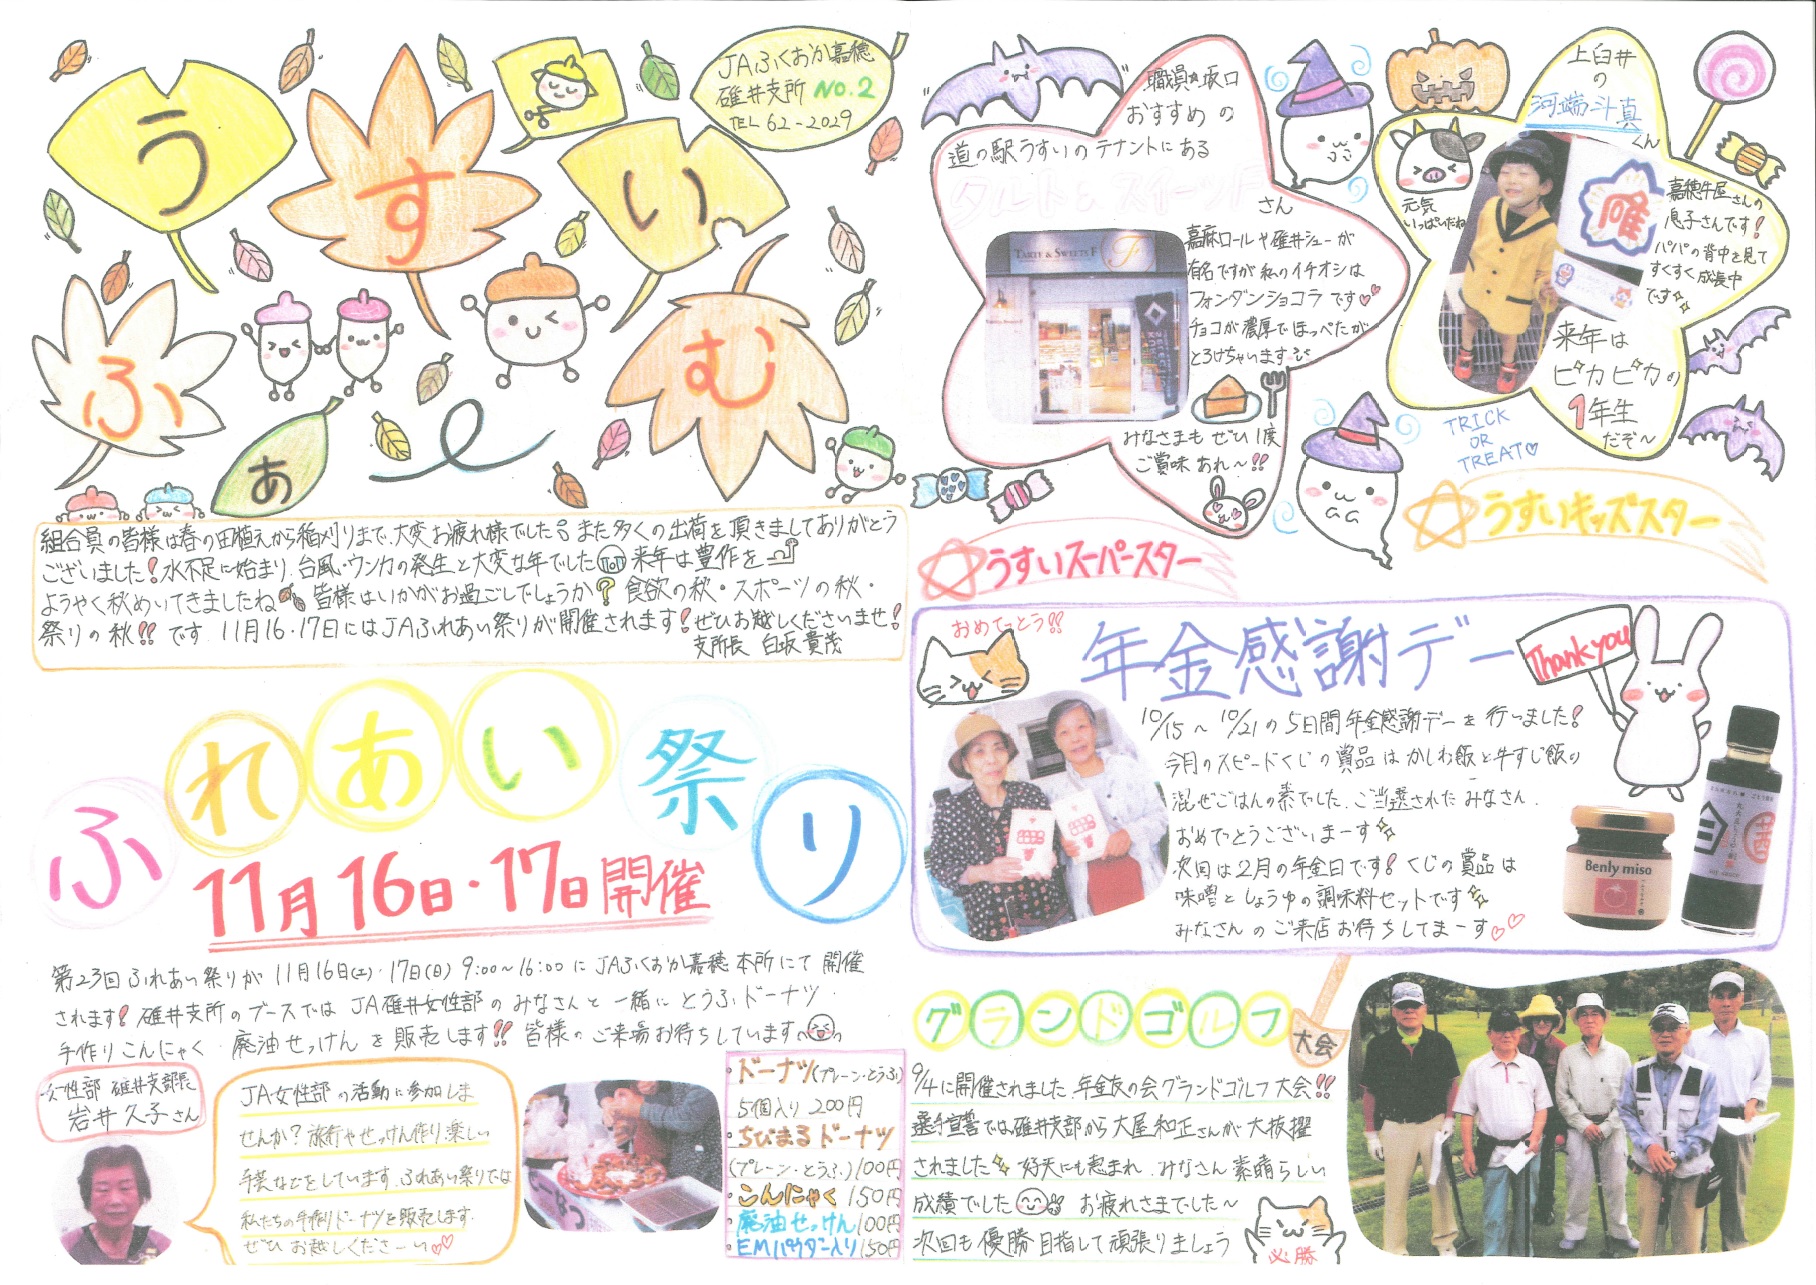 うすいふぁ〜む
JAふくおか嘉穂
碓井支所 NO.2
TEL 62-2029
組合員の皆様は春の田植えから稲刈りまで、大変お疲れ様でした。また多くの出荷を頂きましてありがとう
ございました!水不足に始まり、台風・ウンカの発生と大変な年でした 来年は豊作を
ようやく秋めいてきましたね 皆様はいかがお過ごしでしょうか? 食欲の秋・スポーツの秋・
祭りの秋!! です。11月16・17日にはJAふれあい祭りが開催されます!ぜひお越しくださいませ!
支所長 白坂 貴茂
ふれあい祭り
11月16日・17日開催
第23回ふれあい祭りが 11月16日(土)・17日(日) 9:00〜16:00に JAふくおか嘉穂 本所にて 開催
されます!碓井支所のブースでは JA碓井女性部の みなさんと 一緒に とうふドーナツ・
手作りこんにゃく・廃油せっけん を 販売します!! 皆様の ご来場お待ちしています
女性部 碓井支部長
岩井 久子さん
JA女性部の活動に参加しま
せんか? 旅行やせっけん作り、楽しい
手芸などをしています。ふれあい祭りでは
私たちの手作りドーナツを販売します。
ぜひ お越しくださーい♡♡
・ドーナツ(プレーン・とうふ)
5個入り 200円
・ちびまるドーナツ
(プレーン・とうふ)100円
・こんにゃく 150円
・廃油せっけん100円
・EMパウダー入り150円
職員☆坂口
おすすめ の
道の駅うすいのテナントにある
タルト&スイーツF
さん
TARTE & SWEETS F
嘉麻ロールや碓井シューが
有名ですが私のイチオシは
フォンダンショコラです♡♡
チョコが濃厚でほっぺたが
とろけちゃいます
みなさまも ぜひ1度
ご賞味あれ〜!!
☆うすいスーパースター
上臼井
の
河端 斗真
くん
元気
いっぱいだね
嘉穂牛屋さんの
息子さんです!
パパの背中を見て
すくすく成長中
です
来年は
ピカピカの
1年生
だぞ〜
TRICK
OR
TREAT♡
☆うすいキッズスター
おめでとう!!
年金感謝デー
Thank you
10/15〜10/21の5日間年金感謝デーを行いました!
今月のスピードくじの賞品はかしわ飯と牛すじ飯の
混ぜごはんの素でした。ご当選されたみなさん、
おめでとうございまーす
次回は2月の年金日です!くじの賞品は
味噌としょうゆの調味料セットです
みなさんのご来店お待ちしてまーす♡♡
Benly miso
グランドゴルフ
大会
9/4に開催されました、年金友の会グランドゴルフ大会!!
選手宣誓では、碓井支部から大屋和正さんが大抜擢
されました 好天にも恵まれ、みなさん素晴らしい
成績でした お疲れさまでした〜
次回も優勝目指して頑張りましょう
必勝